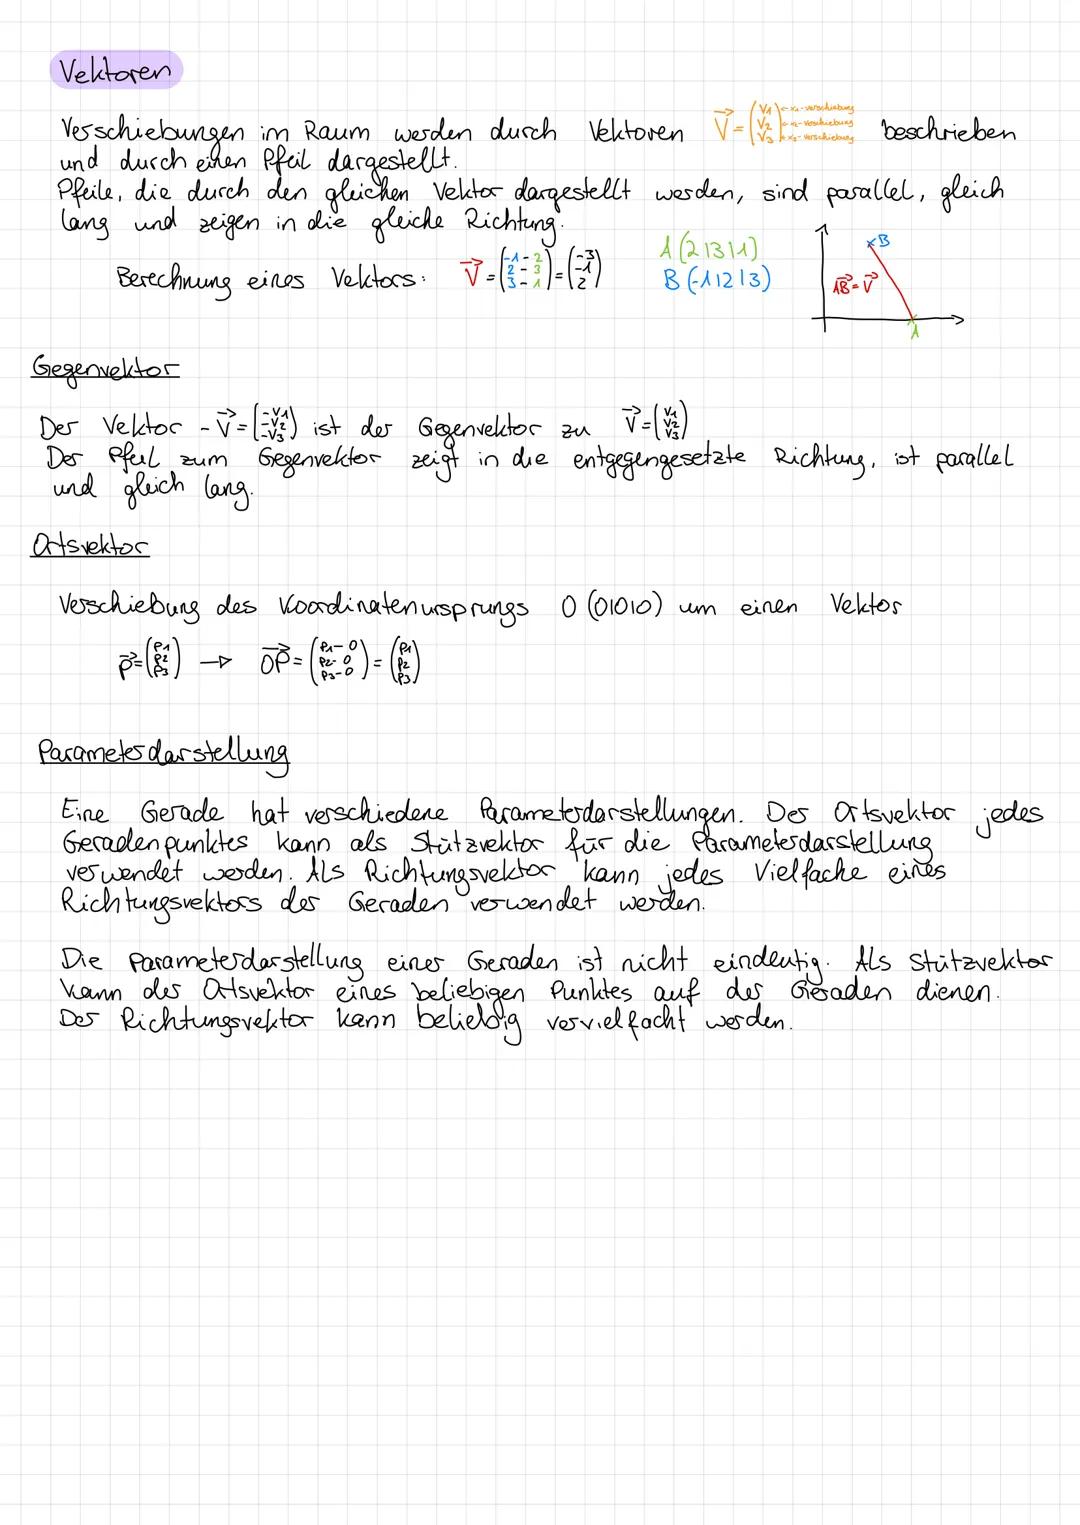 Vektoren
Verschiebungen im Raum werden durch Vektoren V⃗ = (V1 V2 V3) ← x1-verschiebung ← x2-verschiebung ← x3-verschiebung beschrieben
und durch einen Pfeil dargestellt.
Pfeile, die durch den gleichen Vektor dargestellt werden, sind parallel, gleich
lang und zeigen in die gleiche Richtung.
Berechnung eines Vektors: V⃗ = (-1-2 2-3 3-1) = (-3 -1 2)
A (2|3|1)
B (-1|2|3)
B
AB⃗ = V⃗
A
Gegenvektor
Der Vektor -V⃗ = (-V1 -V2 -V3) ist der Gegenvektor zu V⃗ = (V1 V2 V3)
Der Pfeil zum Gegenvektor zeigt in die entgegengesetzte Richtung, ist parallel
und gleich lang.
Ortsvektor
Verschiebung des Koordinatenursprungs O (0|0|0) um einen Vektor
p⃗ = (P1 P2 P3) → OP⃗ = (P1-0 P2-0 P3-0) = (P1 P2 P3)
Parameterdarstellung
Eine Gerade hat verschiedene Parameterdarstellungen. Der Ortsvektor jedes
Geradenpunktes kann als Stützvektor für die Parameterdarstellung
verwendet werden. Als Richtungsvektor kann jedes Vielfache eines
Richtungsvektors der Geraden verwendet werden.
Die Parameterdarstellung einer Geraden ist nicht eindeutig. Als Stützvektor
kann der Ortsvektor eines beliebigen Punktes auf der Geraden dienen.
Der Richtungsvektor kann beliebig vervielfacht werden.